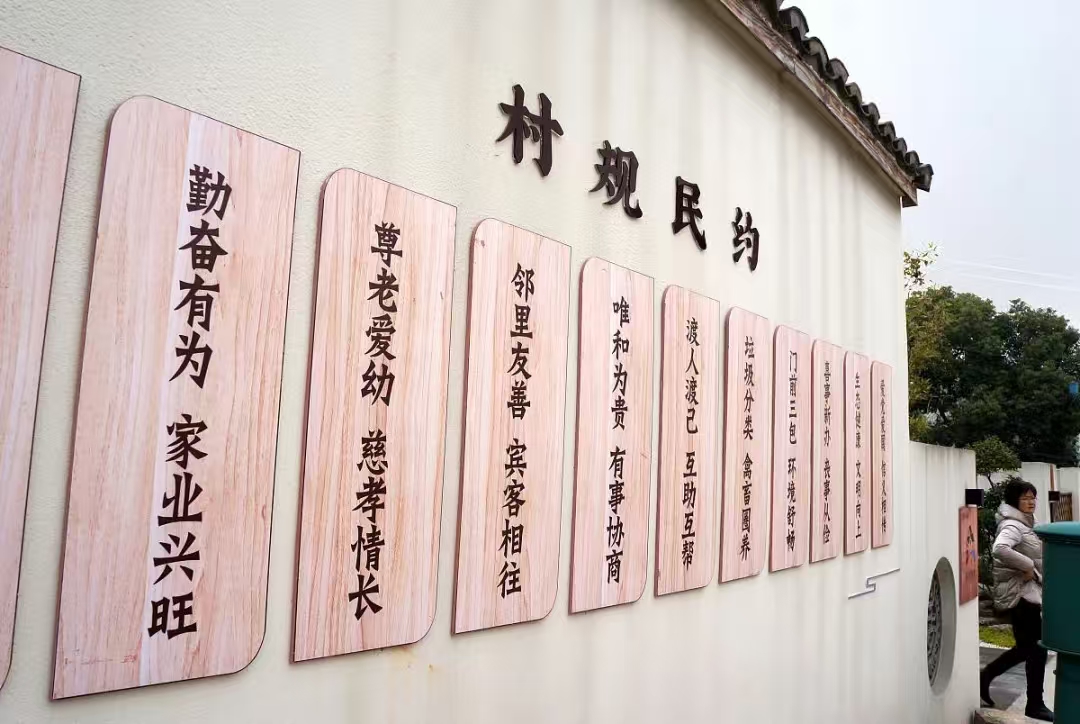 村规民约
勤奋有为 家业兴旺
尊老爱幼 慈孝情长
邻里友善 宾客相往
唯和为贵 有事协商
渡人渡己 互助互帮
垃圾分类 禽畜圈养
门前三包 环境舒畅
喜事新办 丧事从俭
生态健康 文明向上
爱党爱国 信义相传